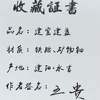 收藏証書
品名：建窑建盏
材质：铁胎、矿物釉
产地：建阳·水吉
作者签名：